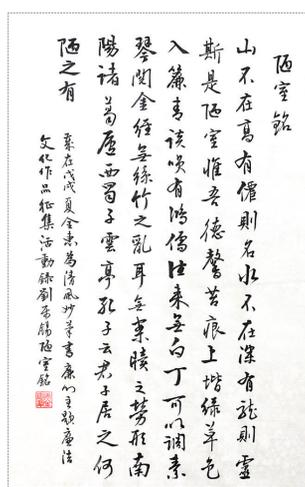 陋室銘
山不在高有僊則名水不在深有龍則靈
斯是陋室惟吾德馨苔痕上堦綠草色
入簾青談咲有鴻儒往來無白丁可以調素
琴閱金經無絲竹之亂耳無案牘之勞形南
陽諸葛廬西蜀子雲亭孔子云君子居之何
陋之有
歲在戊戌夏為清風妙筆書廉心主題廉潔
文化作品征集活動錄劉禹錫陋室銘